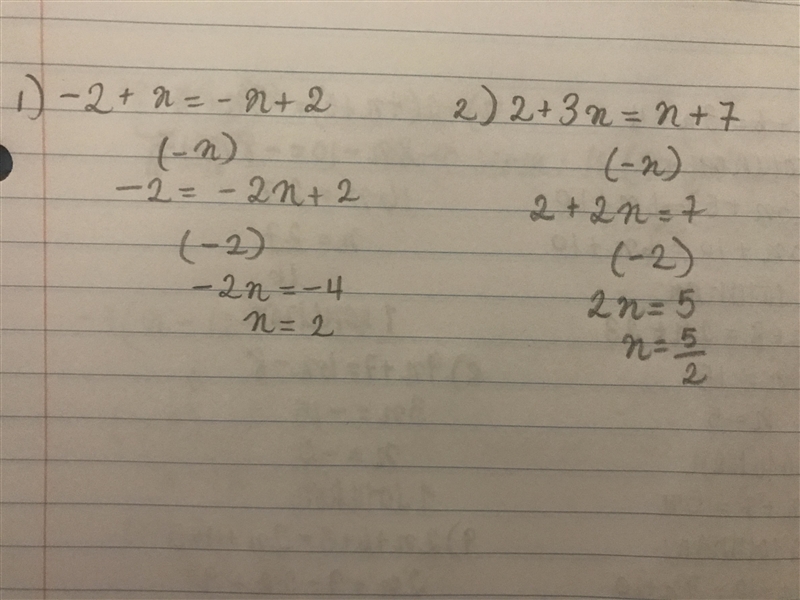 1) -2 + x = -x + 2
(-x)
-2 = -2x + 2
(-2)
-2x = -4
x = 2
2) 2 + 3x = x + 7
(-x)
2 + 2x = 7
(-2)
2x = 5
x = 5/2